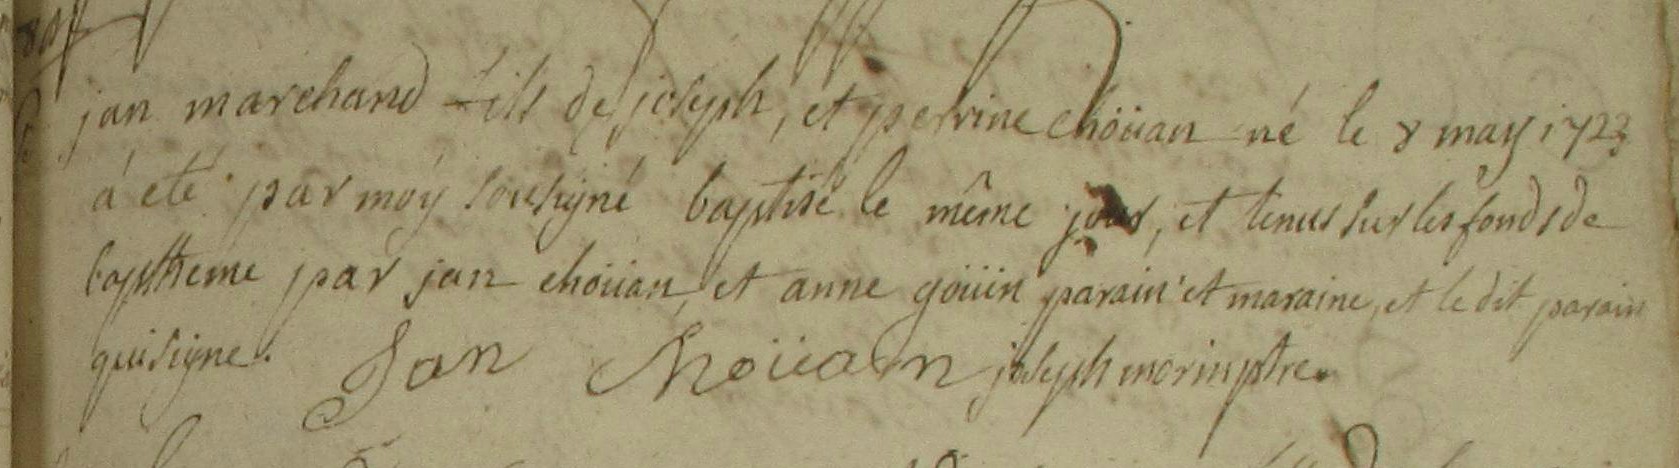 jan marchand fils de joseph, et perrine choüan né le 8 may 1723
a eté par moy sousigné baptisé le même jour, et tenus sur les fonds de
baptheme par jan choüan, et anne goüin parain et maraine, et le dit parain
qui signe.
Jan Choüan joseph morin ptre.